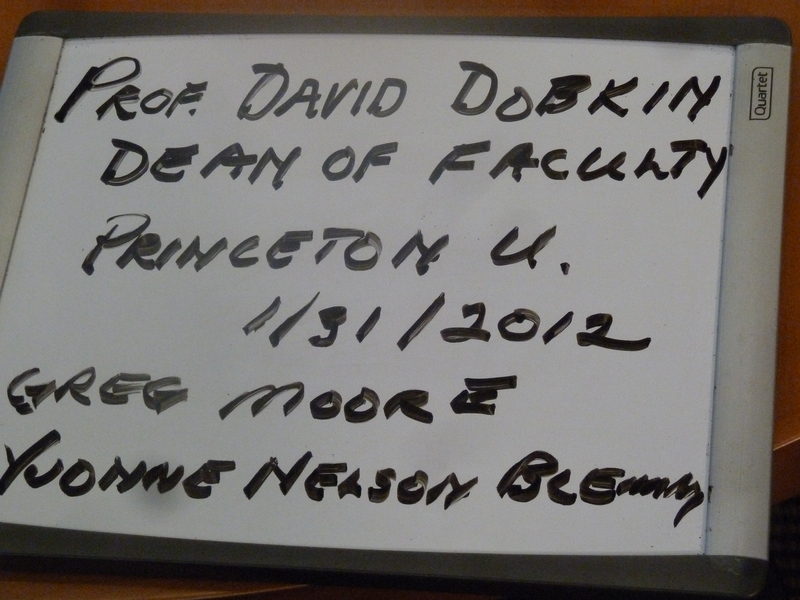 PROF. DAVID DOBKIN
DEAN OF FACULTY
PRINCETON U.
1/31/2012
GREG MOORE
YVONNE NELSON
Quartet